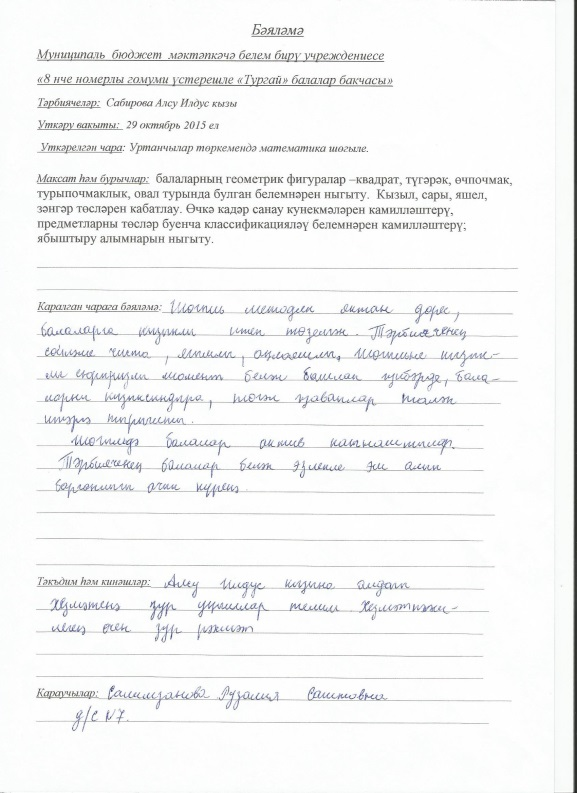 Бәяләмә
Муниципаль бюджет мәктәпкәчә белем бирү учреждениесе
«8 нче номерлы гомуми үстерешле «Тургай» балалар бакчасы»
Тәрбиячеләр: Сабирова Алсу Илдус кызы
Уткәру вакыты: 29 октябрь 2015 ел
Уткәрелгән чара: Уртанчылар төркемендә математика шөгыле.
Максат һәм бурычлар: балаларның геометрик фигуралар –квадрат, түгәрәк, өчпочмак,
турыпочмаклык, овал турында булган белемнәрен ныгыту. Кызыл, сары, яшел,
зәңгәр төсләрен кабатлау. Өчкә кадәр санау кунекмәләрен камилләштерү,
предметларны төсләр буенча классификацияләү белемнәрен камилләштерү;
ябыштыру алымнарын ныгыту.
Каралган чарага бәяләмә: Шөгыль методик яктан дөрес,
балаларга кызыклы итеп төзелгән. Тәрбияченең
сөйләме чиста, ягымлы, аңлаешлы. Шөгыльне кызык-
лы сюрпризлы момент белән башлап җибәрде, бала-
ларны кызыксындыра, төгәл җаваплар таләп
итәргә тырышты.
Шөгыльдә балалар актив катнаштылар.
Тәрбияченең балалар белән эзлекле эш алып
барганлыгы ачык күренә.
Тәкъдим һәм киңәшләр: Алсу Илдус кызына алдагы
хезмәтенә зур уңышлар телим. Хезмәттәшлегең өчен зур рәхмәт
Караучылар: Салимзанова Рузалия Саитовна
д/с N7.